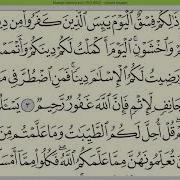 ذَٰلِكُمْ فِسْقٌ ۗ ٱلْيَوْمَ يَئِسَ ٱلَّذِينَ كَفَرُوا۟ مِن دِ
وَٱخْشَوْنِ ۚ ٱلْيَوْمَ أَكْمَلْتُ لَكُمْ دِينَكُمْ وَأَتْمَمْ
رَضِيتُ لَكُمُ ٱلْإِسْلَٰمَ دِينًا ۚ فَمَنِ ٱضْطُرَّ فِى مَ
جَانِفٍ لِّإِثْمٍ ۙ فَإِنَّ ٱللَّهَ غَفُورٌ رَّحِيمٌ ٣ يَسْـَٔلُ
قُلْ أُحِلَّ لَكُمُ ٱلطَّيِّبَٰتُ ۙ وَمَا عَلَّمْتُم مِّنَ
تُعَلِّمُونَهُنَّ مِمَّا عَلَّمَكُمُ ٱللَّهُ ۖ فَكُلُوا۟ مِمَّآ أَمْسَ